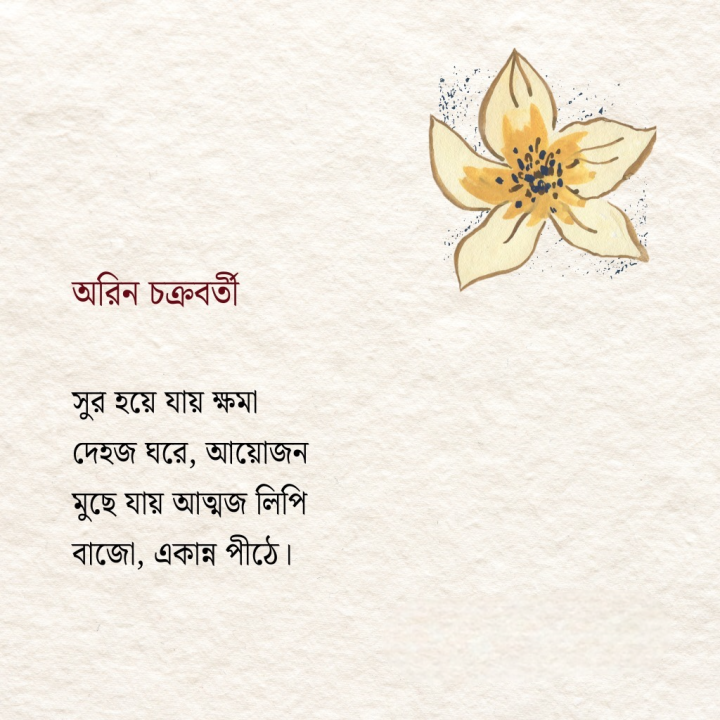 অরিন চক্রবর্তী
সুর হয়ে যায় ক্ষমা
দেহজ ঘরে, আয়োজন
মুছে যায় আত্মজ লিপি
বাজো, একান্ন পীঠে।